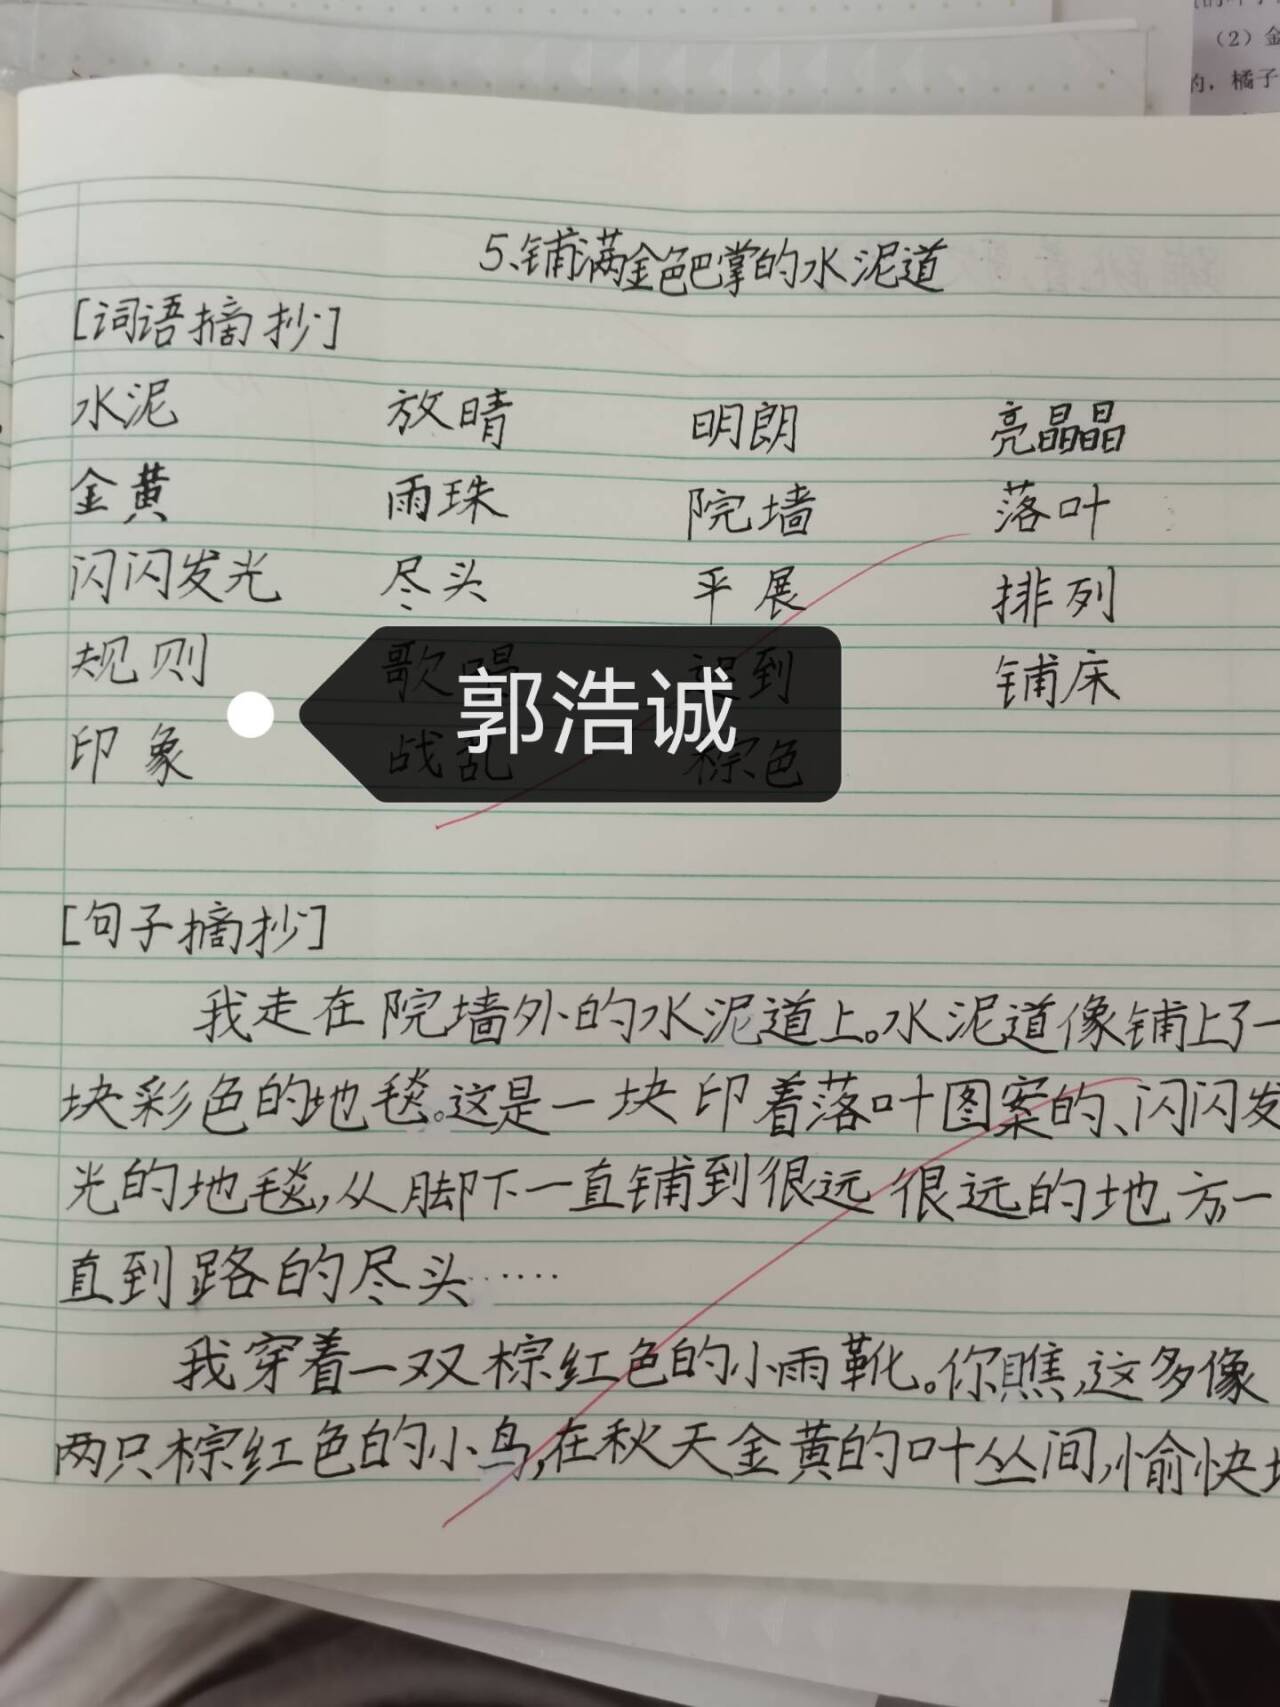 （2）金
的，橘子
5、铺满金色巴掌的水泥道
[词语摘抄]
水泥 放晴 明朗 亮晶晶
金黄 雨珠 院墙 落叶
闪闪发光 尽头 平展 排列
规则 歌唱 迟到 铺床
郭浩诚
印象 战乱 棕色
[句子摘抄]
我走在院墙外的水泥道上。水泥道像铺上了一
块彩色的地毯。这是一块印着落叶图案的、闪闪发
光的地毯,从脚下一直铺到很远很远的地方,一
直到路的尽头……
我穿着一双棕红色的小雨靴。你瞧,这多像
两只棕红色的小鸟,在秋天金黄的叶丛间,愉快地